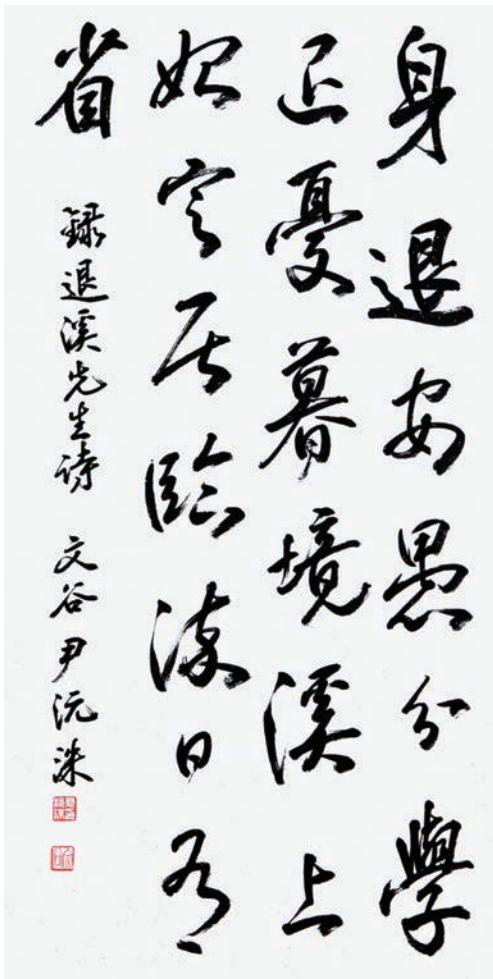 身退安愚分學
退憂暮境溪上
始定居臨流日有
省
錄退溪先生詩 文谷 尹沅洙